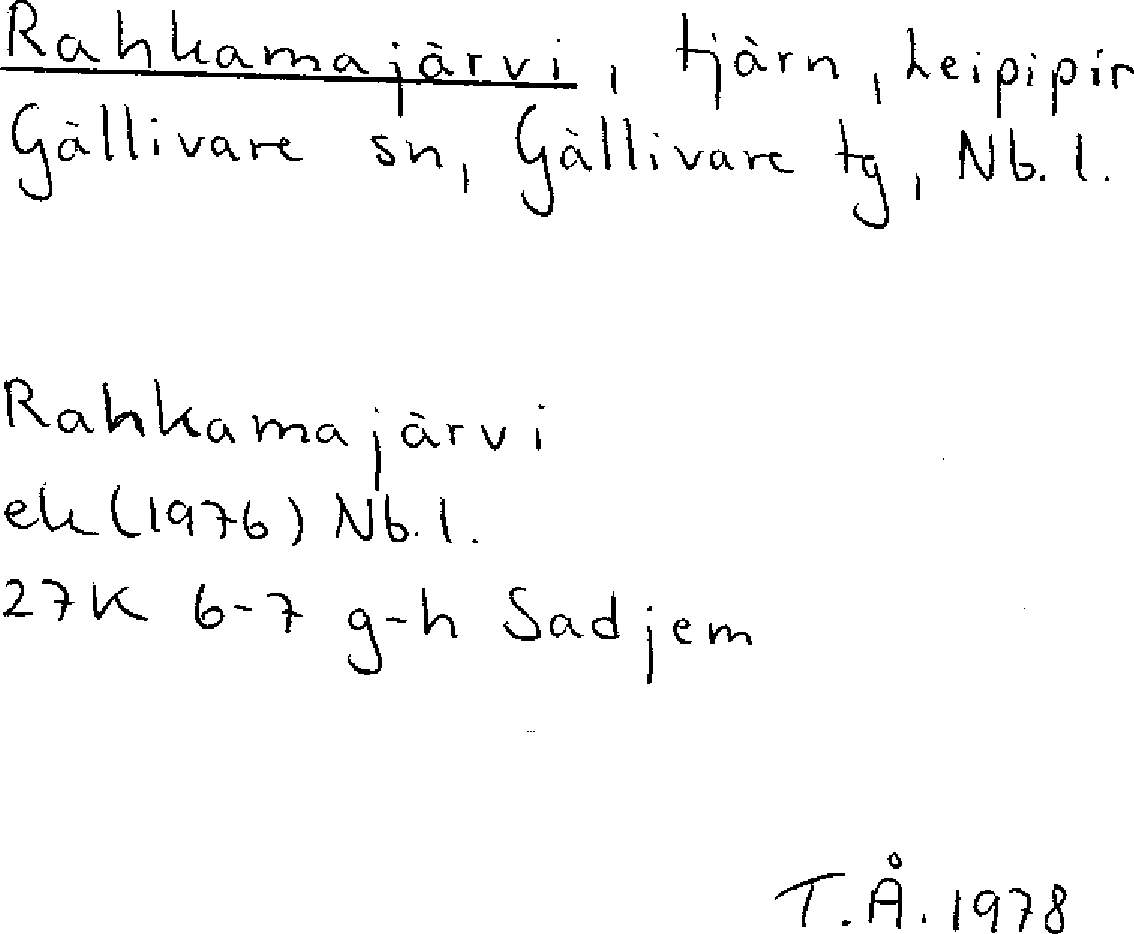 Rahkamajärvi, tjärn, Leipipir
Gällivare sn, Gällivare tg, Nb. l.
Rahkamajärvi
ek (1976) Nb. l.
27K 6-7 g-h Sadjem
T.Å. 1978